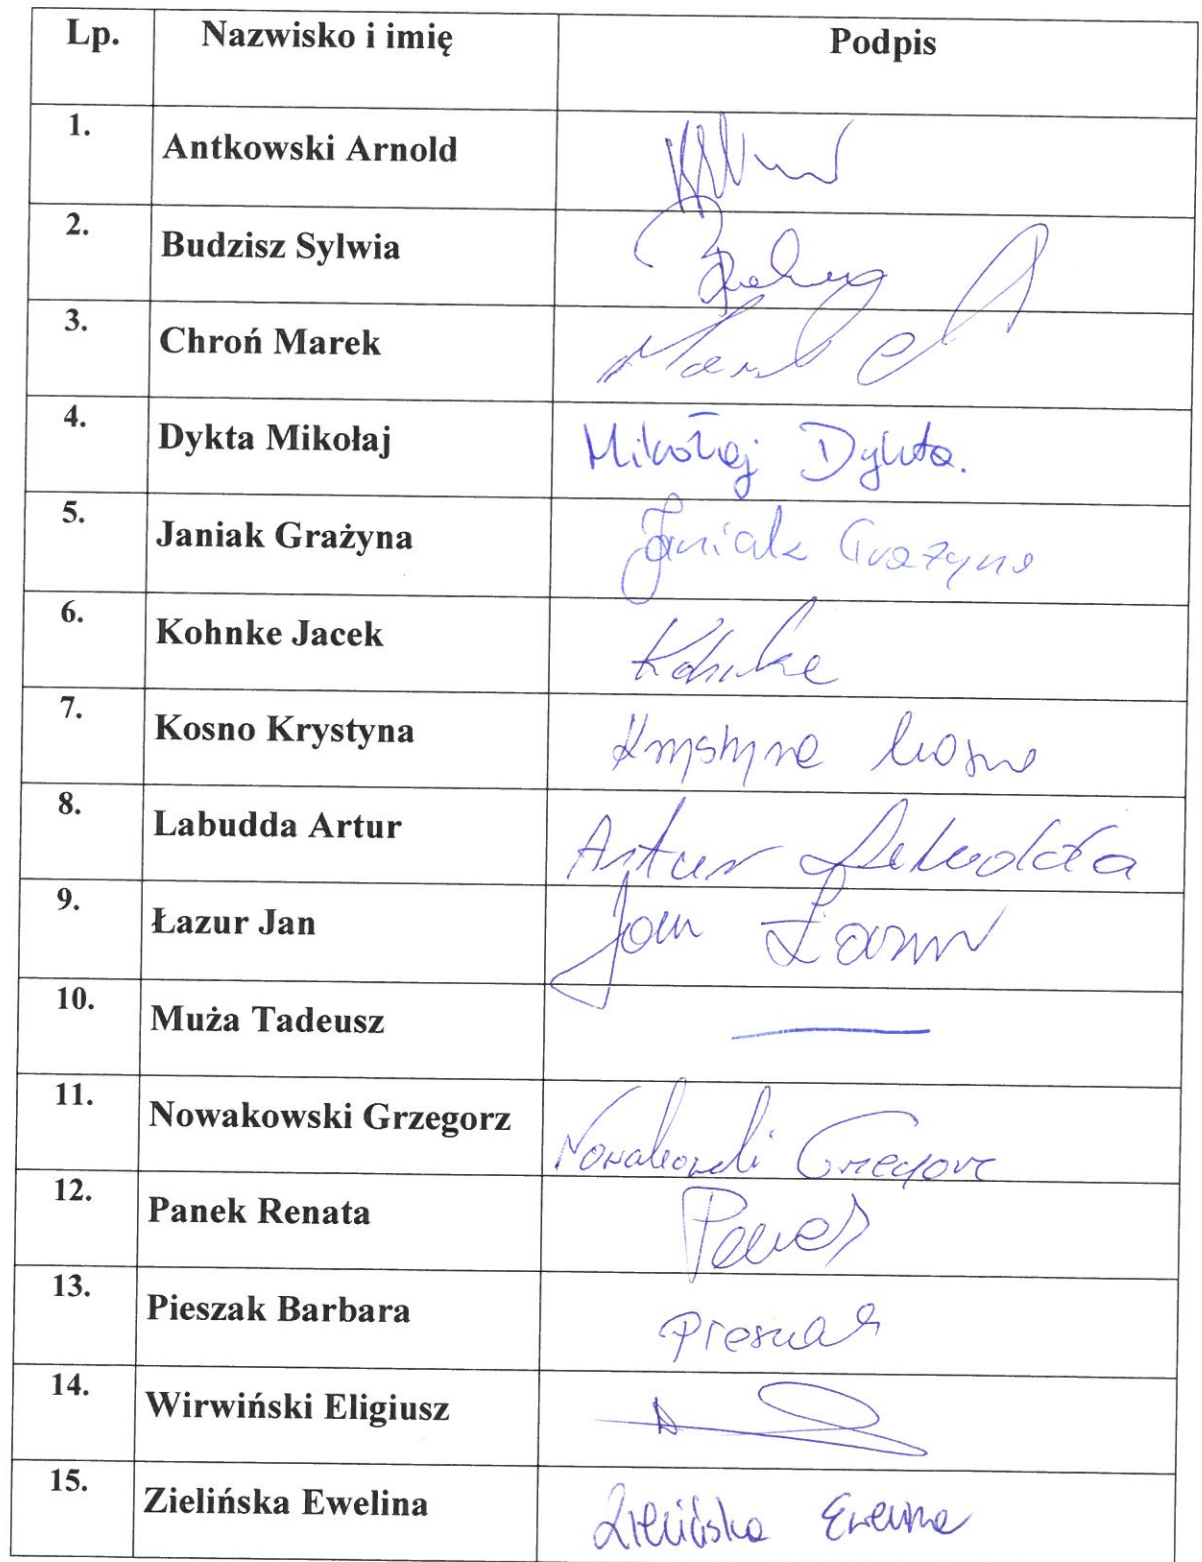 Lp. Nazwisko i imię Podpis
1. Antkowski Arnold
2. Budzisz Sylwia
3. Chroń Marek Marek
4. Dykta Mikołaj Mikołaj Dykta.
5. Janiak Grażyna Janiak Grażyna
6. Kohnke Jacek Kohnke
7. Kosno Krystyna Krystyna Kosno
8. Labudda Artur Artur Labudda
9. Łazur Jan Jan Łazur
10. Muża Tadeusz
11. Nowakowski Grzegorz Nowakowski Grzegorz
12. Panek Renata Panek
13. Pieszak Barbara Pieszak
14. Wirwiński Eligiusz
15. Zielińska Ewelina Zielińska Ewelina